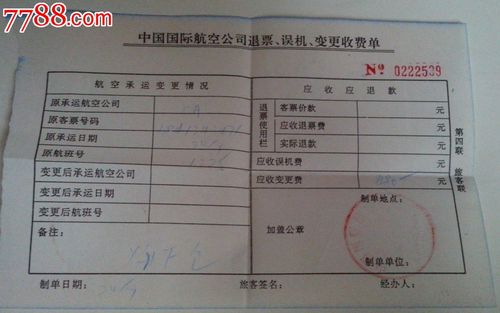 7788.com
中国国际航空公司退票、误机、变更收费单
№ 0222539
航空承运变更情况
应收应退款
原承运航空公司 CA
原客票号码
原承运日期
原航班号
变更后承运航空公司
变更后承运日期
变更后航班号
备注:
退票使用栏
客票价款 元
应收退票费 元
实际退款 元
应收误机费 元
应收变更费 元
制单地点:
加盖公章
制单单位:
第四联 旅客联
制单日期: 旅客签名: 经办人: